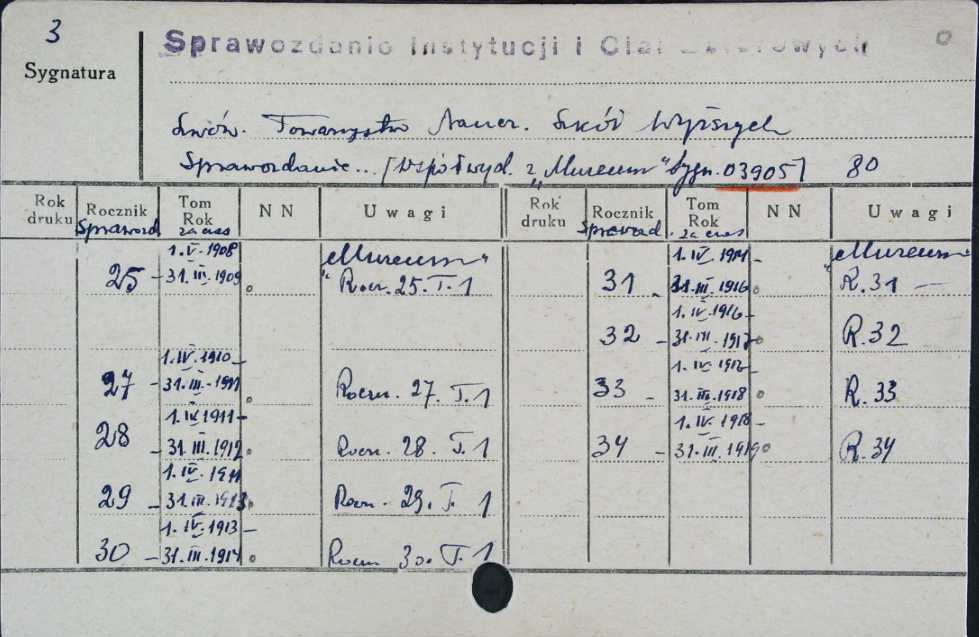 3
Sprawozdanie Instytucji i Ciał Zbiorowych
0
Sygnatura
Lwów. Towarzystwo Naucz. Szkół Wyższych
Sprawozdanie... [Współwyd. z „Museum" Sygn. 03905] 80
Rok druku Rocznik Sprawozd Tom Rok za czas NN Uwagi
25 — 1.IV.1908 31.III.1909 „Museum" Roczn. 25. T. 1
27 — 1.IV.1910 — 31.III.1911 Roczn. 27. T. 1
28 — 1.IV.1911 — 31.III.1912 Roczn. 28. T. 1
29 — 1.IV.1911 31.III.1913 Roczn. 29. T. 1
30 — 1.IV.1913 — 31.III.1914 Roczn. 30. T. 1
Rok druku Rocznik Sprawozd. Tom Rok za czas NN Uwagi
31 — 1.IV.1914 — 31.III.1916 „Museum" R. 31 —
32 — 1.IV.1916 — 31.III.1917 R. 32
33 — 31.III.1918 R. 33
34 — 1.IV.1918 — 31.III.1919 R. 34